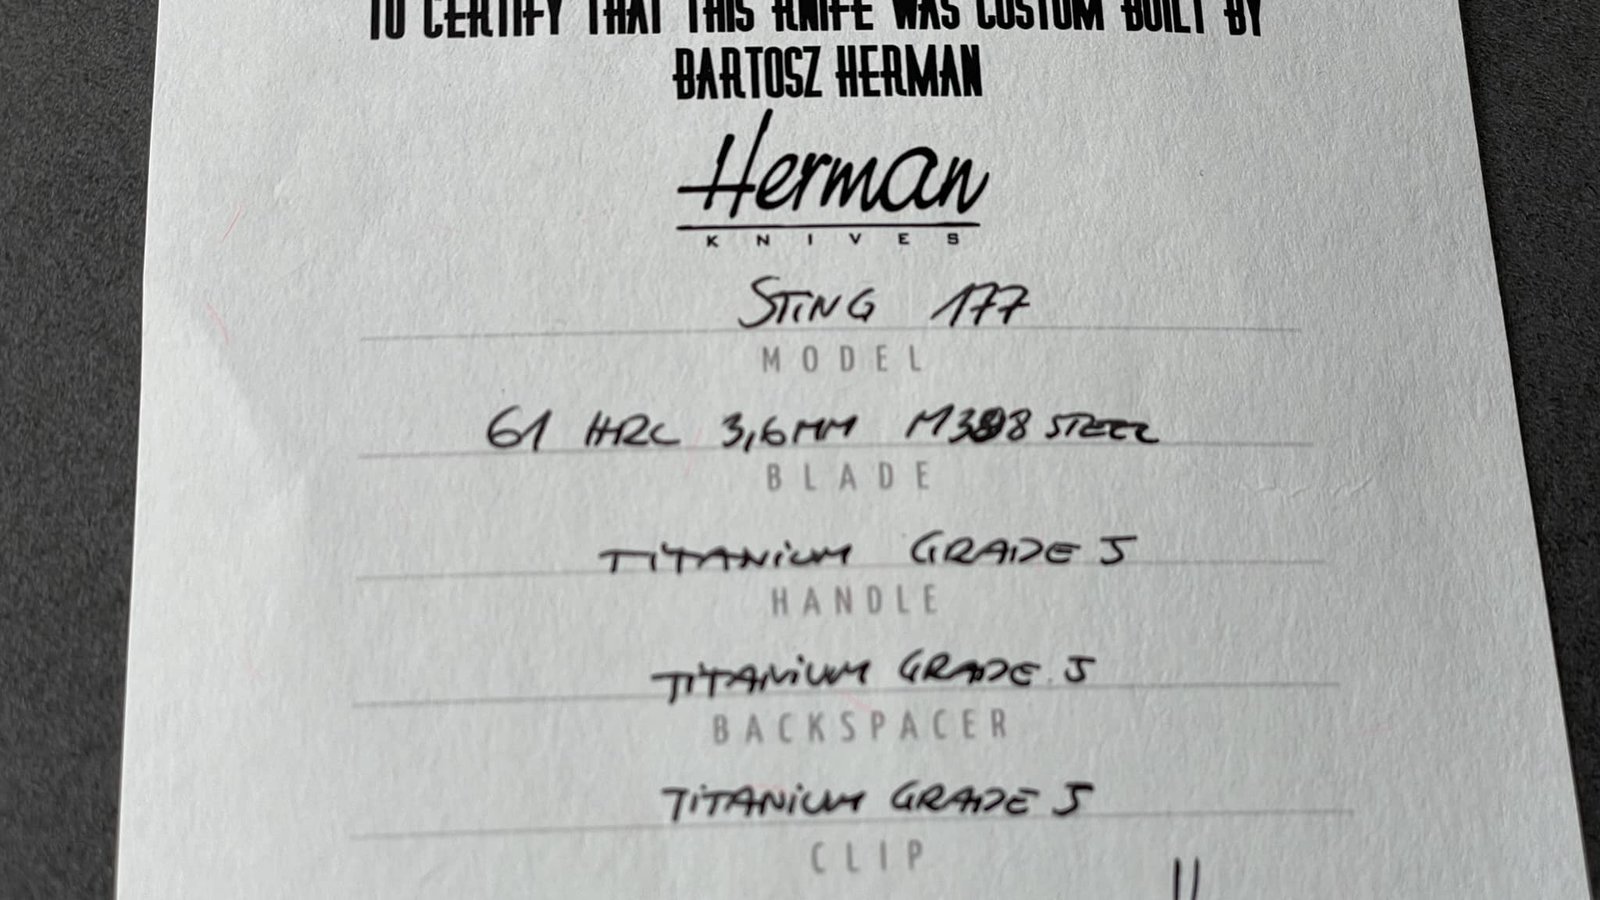 TO CERTIFY THAT THIS KNIFE WAS CUSTOM BUILT BY
BARTOSZ HERMAN
Herman
KNIVES
STING 177
MODEL
61 HRC 3,6MM M398 STEEL
BLADE
TITANIUM GRADE 5
HANDLE
TITANIUM GRADE 5
BACKSPACER
TITANIUM GRADE 5
CLIP